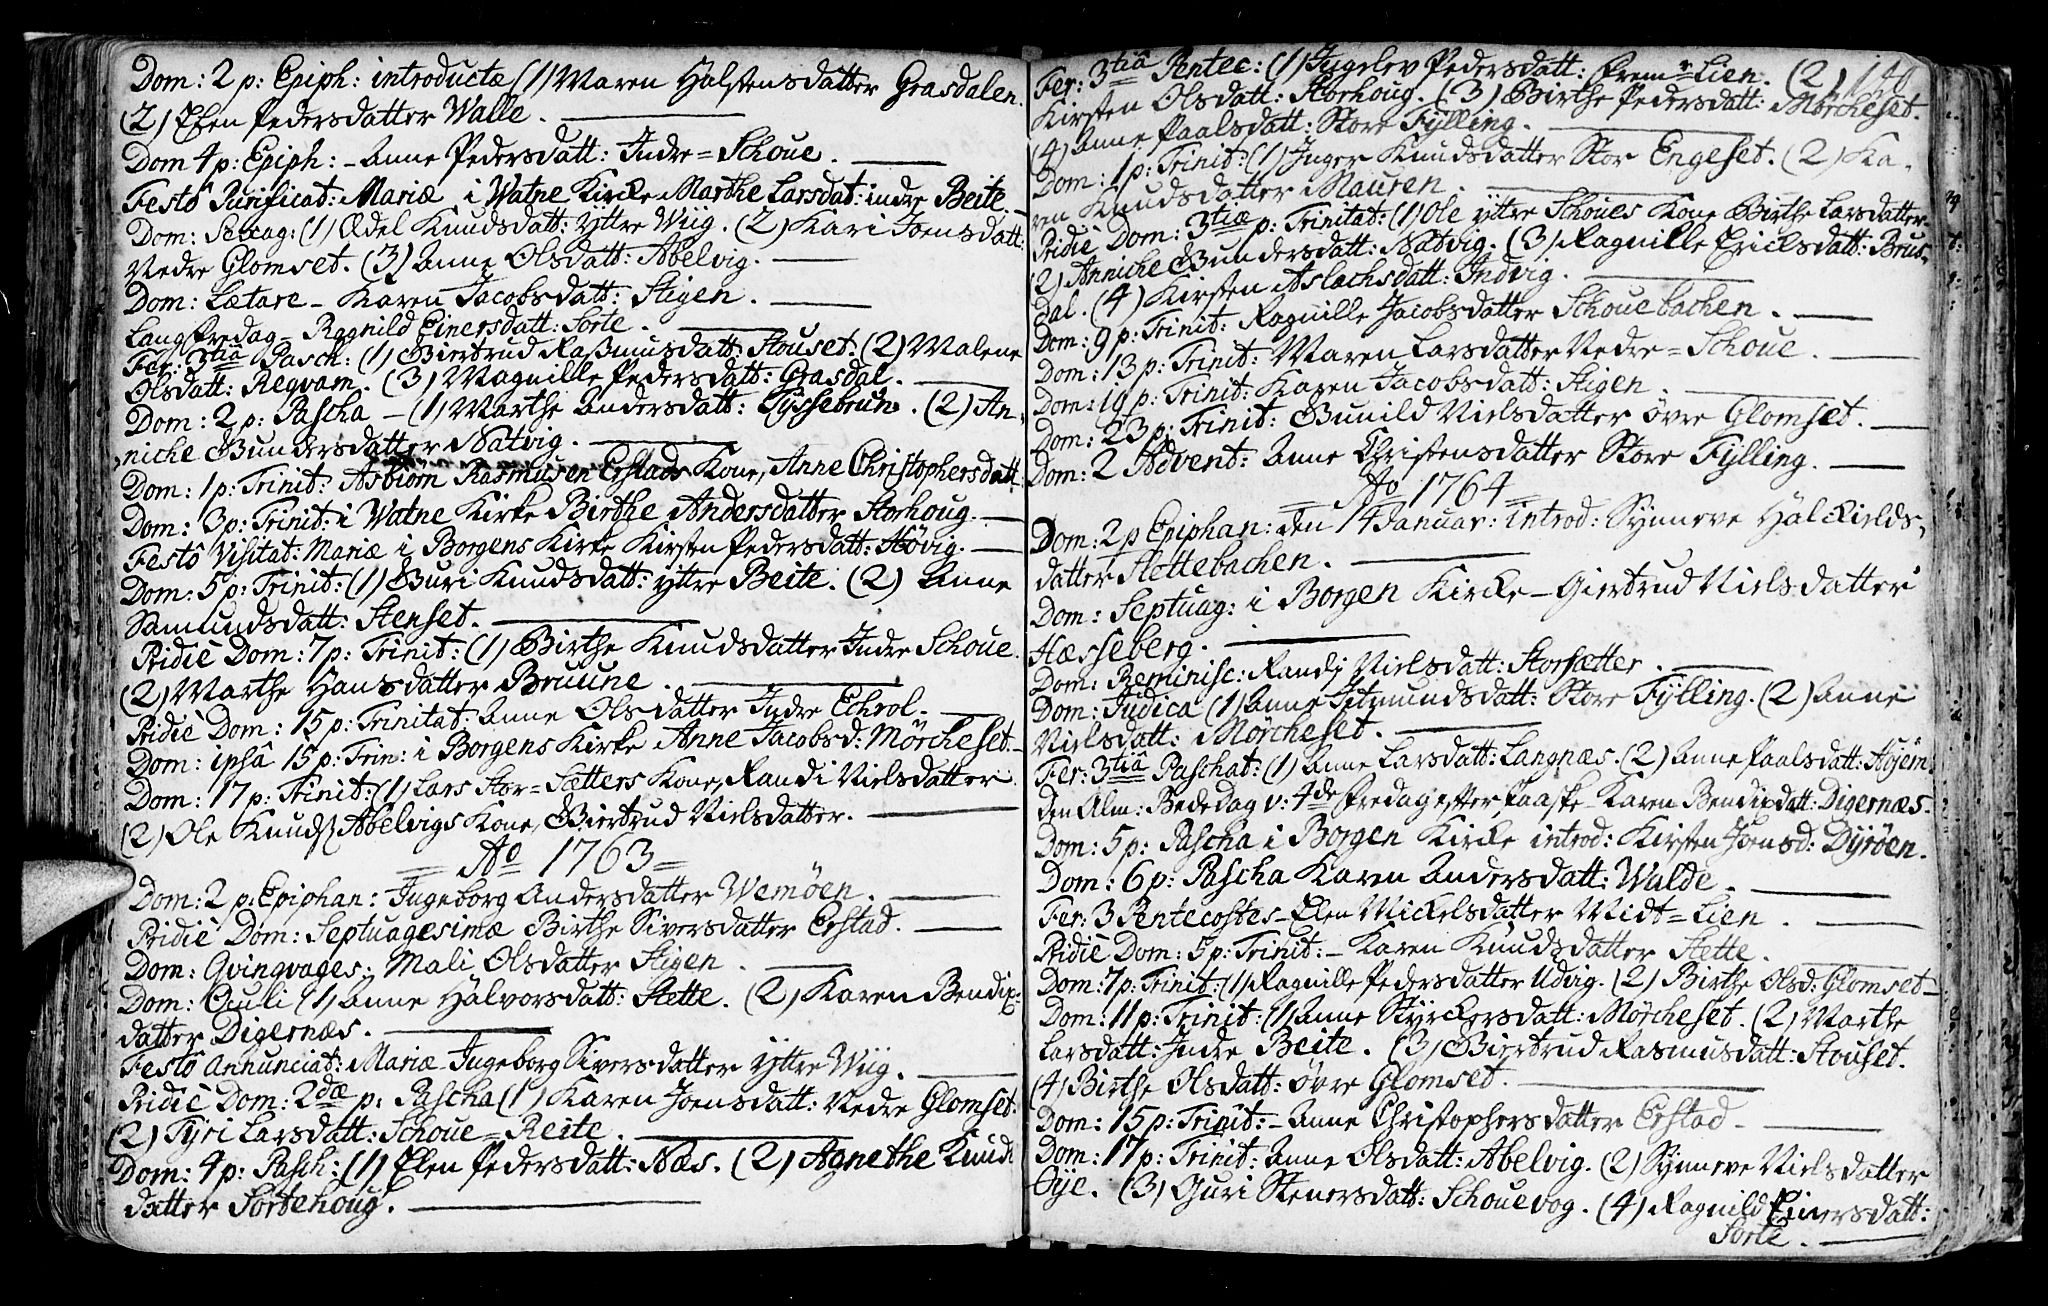 Dom: 2 p: Epiph: introductæ (1) Maren Halstensdatter Grasdalen.
(2) Elen Pedersdatter Walle.
Dom 4 p: Epiph: - Anne Pedersdatt: Indre=Schoue.
Festô Purificat: Mariæ i Watne Kircke Marthe Larsdat: indre Beite.
Dom: Sexag: (1) Ædel Knudsdatt: yttre Wiig. (2) Kari Joensdatt:
Nedre Glomset. (3) Anne Olsdatt: Abelvig.
Dom: Lætare - Karen Jacobsdatt: Stigen.
Langfredag - Ragnild Einersdatt: Sorte.
Fer: 3tiâ Pasch: (1) Giertrud Rasmusdatt: Stouset. (2) Malene
Olsdatt: Reqvam. (3) Magnille Pedersdatt: Grasdal.
Dom: 2 p: Pascha - (1) Marthe Andersdatt: Gyssebrun. (2) An-
niche Gundersdatter Natvig.
Dom: 1 p: Trinit: Asbiørn Rasmusen Erstads Kone, Anne Christophersdatt:
Dom: 3 p: Trinit: i Watne Kirke Birthe Andersdatter Storhoug.
Festô Visitat: Mariæ i Borgens Kirke Kirsten Pedersdatt: Høvig.
Dom: 5 p: Trinit: (1) Guri Knudsdatt: yttre Beite. (2) Anne
Samundsdatt: Stenset.
Pridiè Dom: 7 p: Trinit: (1) Birthe Knudsdatter Indre Schoue.
(2) Marthe Hansdatter Bruune.
Pridiè Dom: 15 p: Trinitat: Anne Olsdatter Indre Echrol.
Dom: ipsâ 15 p: Trin: i Borgens Kirke Anne Jacobsd: Mörcheset.
Dom: 17 p: Trinit: (1) Lars Stor=Sætters Kone, Randi Nielsdatter
(2) Ole Knuds Abelvigs Kone, Giertrud Nielsdatter.
= Ao 1763 =
Dom: 2 p: Epiphan: Ingeborg Andersdatter Wemöen.
Pridiè Dom: Septuagesimæ Birthe Siversdatter Erstad.
Dom: Qvinqvages: Mali Olsdatter Stigen.
Dom: Oculi (1) Anne Halvorsdatt: Stette. (2) Karen Bendix-
datter Digernæs.
Festô Annunciat: Mariæ - Ingeborg Siversdatter Yttre Wiig.
Pridiè Dom: 2dæ p: Pascha (1) Karen Joensdatt: Nedre Glomset.
(2) Tyri Larsdatt: Schoue=Reite.
Dom: 4 p: Pasch: (1) Elen Pedersdatt: Næs. (2) Agnethe Knud
datter Sortehoug.
Fer: 3tiâ Pentec: (1) Ingelev Pedersdatt: Frem=Lien. (2) 140
Kirsten Olsdatt: Storhoug. (3) Birthe Pedersdatt: Mörcheset.
(4) Anne Paalsdatt: Store Fylling.
Dom: 1 p: Trinit: (1) Inger Knudsdatter Stor Engeset. (2) Ka-
ren Knudsdatter Mauren.
Pridiè Dom: 3tiæ p: Trinitat: (1) Ole yttre Schoues Kone Birthe Larsdatter.
(2) Anniche Gundersdatt: Natvig. (3) Ragnille Ericksdatt: Brus-
dal. (4) Kirsten Aslachsdatt: Indvig.
Dom: 9 p: Trinit: Ragnille Jacobsdatter Schouebachen.
Dom: 13 p: Trinit: Maren Larsdatter Nedre=Schoue.
Dom: 19 p: Trinit: Karen Jacobsdatt: Stigen.
Dom: 23 p: Trinit: Gunild Nielsdatter övre Glomset.
Dom: 2 Advent: Anne Christensdatter Store Fylling.
= Ao 1764 =
Dom: 2 p Epiphan: den 14 Januar: introd: Synneve Halckields-
datter Stettebachen.
Dom: Septuag: i Borgen Kircke - Giertrud Nielsdatter
Hæsseberg.
Dom: Reminisc: Randj Nielsdatt: Storsætter.
Dom: Judica (1) Anne Setmundsdatt: Store Fylling. (2) Anne
Nielsdatt: Mörcheset.
Fer: 3tiâ Paschat: (1) Anne Larsdatt: Langnæs. (2) Anne Paalsdatt: Höjem.
Den Alm: Bededag v: 4de Fredag efter Paaske - Karen Bendixdatt: Digernæs.
Dom: 5 p: Pascha i Borgen Kircke introd: Kirsten Joensd: Dyröen.
Dom: 6 p: Pascha Karen Andersdatt: Walde.
Fer: 3 Pentecostes - Elen Mickelsdatter Midt=Lien.
Pridiè Dom: 5 p: Trinit: - Karen Knudsdatter Stette.
Dom: 7 p: Trinit: (1) Ragnille Pedersdatter Udvig. (2) Birthe Olsd: Glomset
Dom: 11 p: Trinit: (1) Anne Styrckersdatt: Mörcheset. (2) Marthe
Larsdatt: Indre Beite. (3) Giertrud Rasmusdatt: Stouset.
(4) Birthe Olsdatt: övre Glomset.
Dom: 15 p: Trinit: - Anne Christophersdatter Erstad
Dom: 17 p: Trinit: Anne Olsdatt: Abelvig. (2) Synneve Nielsdatter
Gye. (3) Guri Stenersdatt: Schouevog. (4) Ragnild Einersdatt:
Sorte.